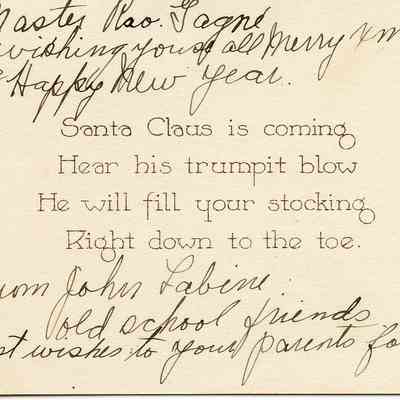 Master Rao. Gagné
wishing you & all Merry Xm
& Happy New Year.
Santa Claus is coming
Hear his trumpit blow
He will fill your stocking
Right down to the toe.
rom John Labine.
old school friends
st wishes to your parents fo